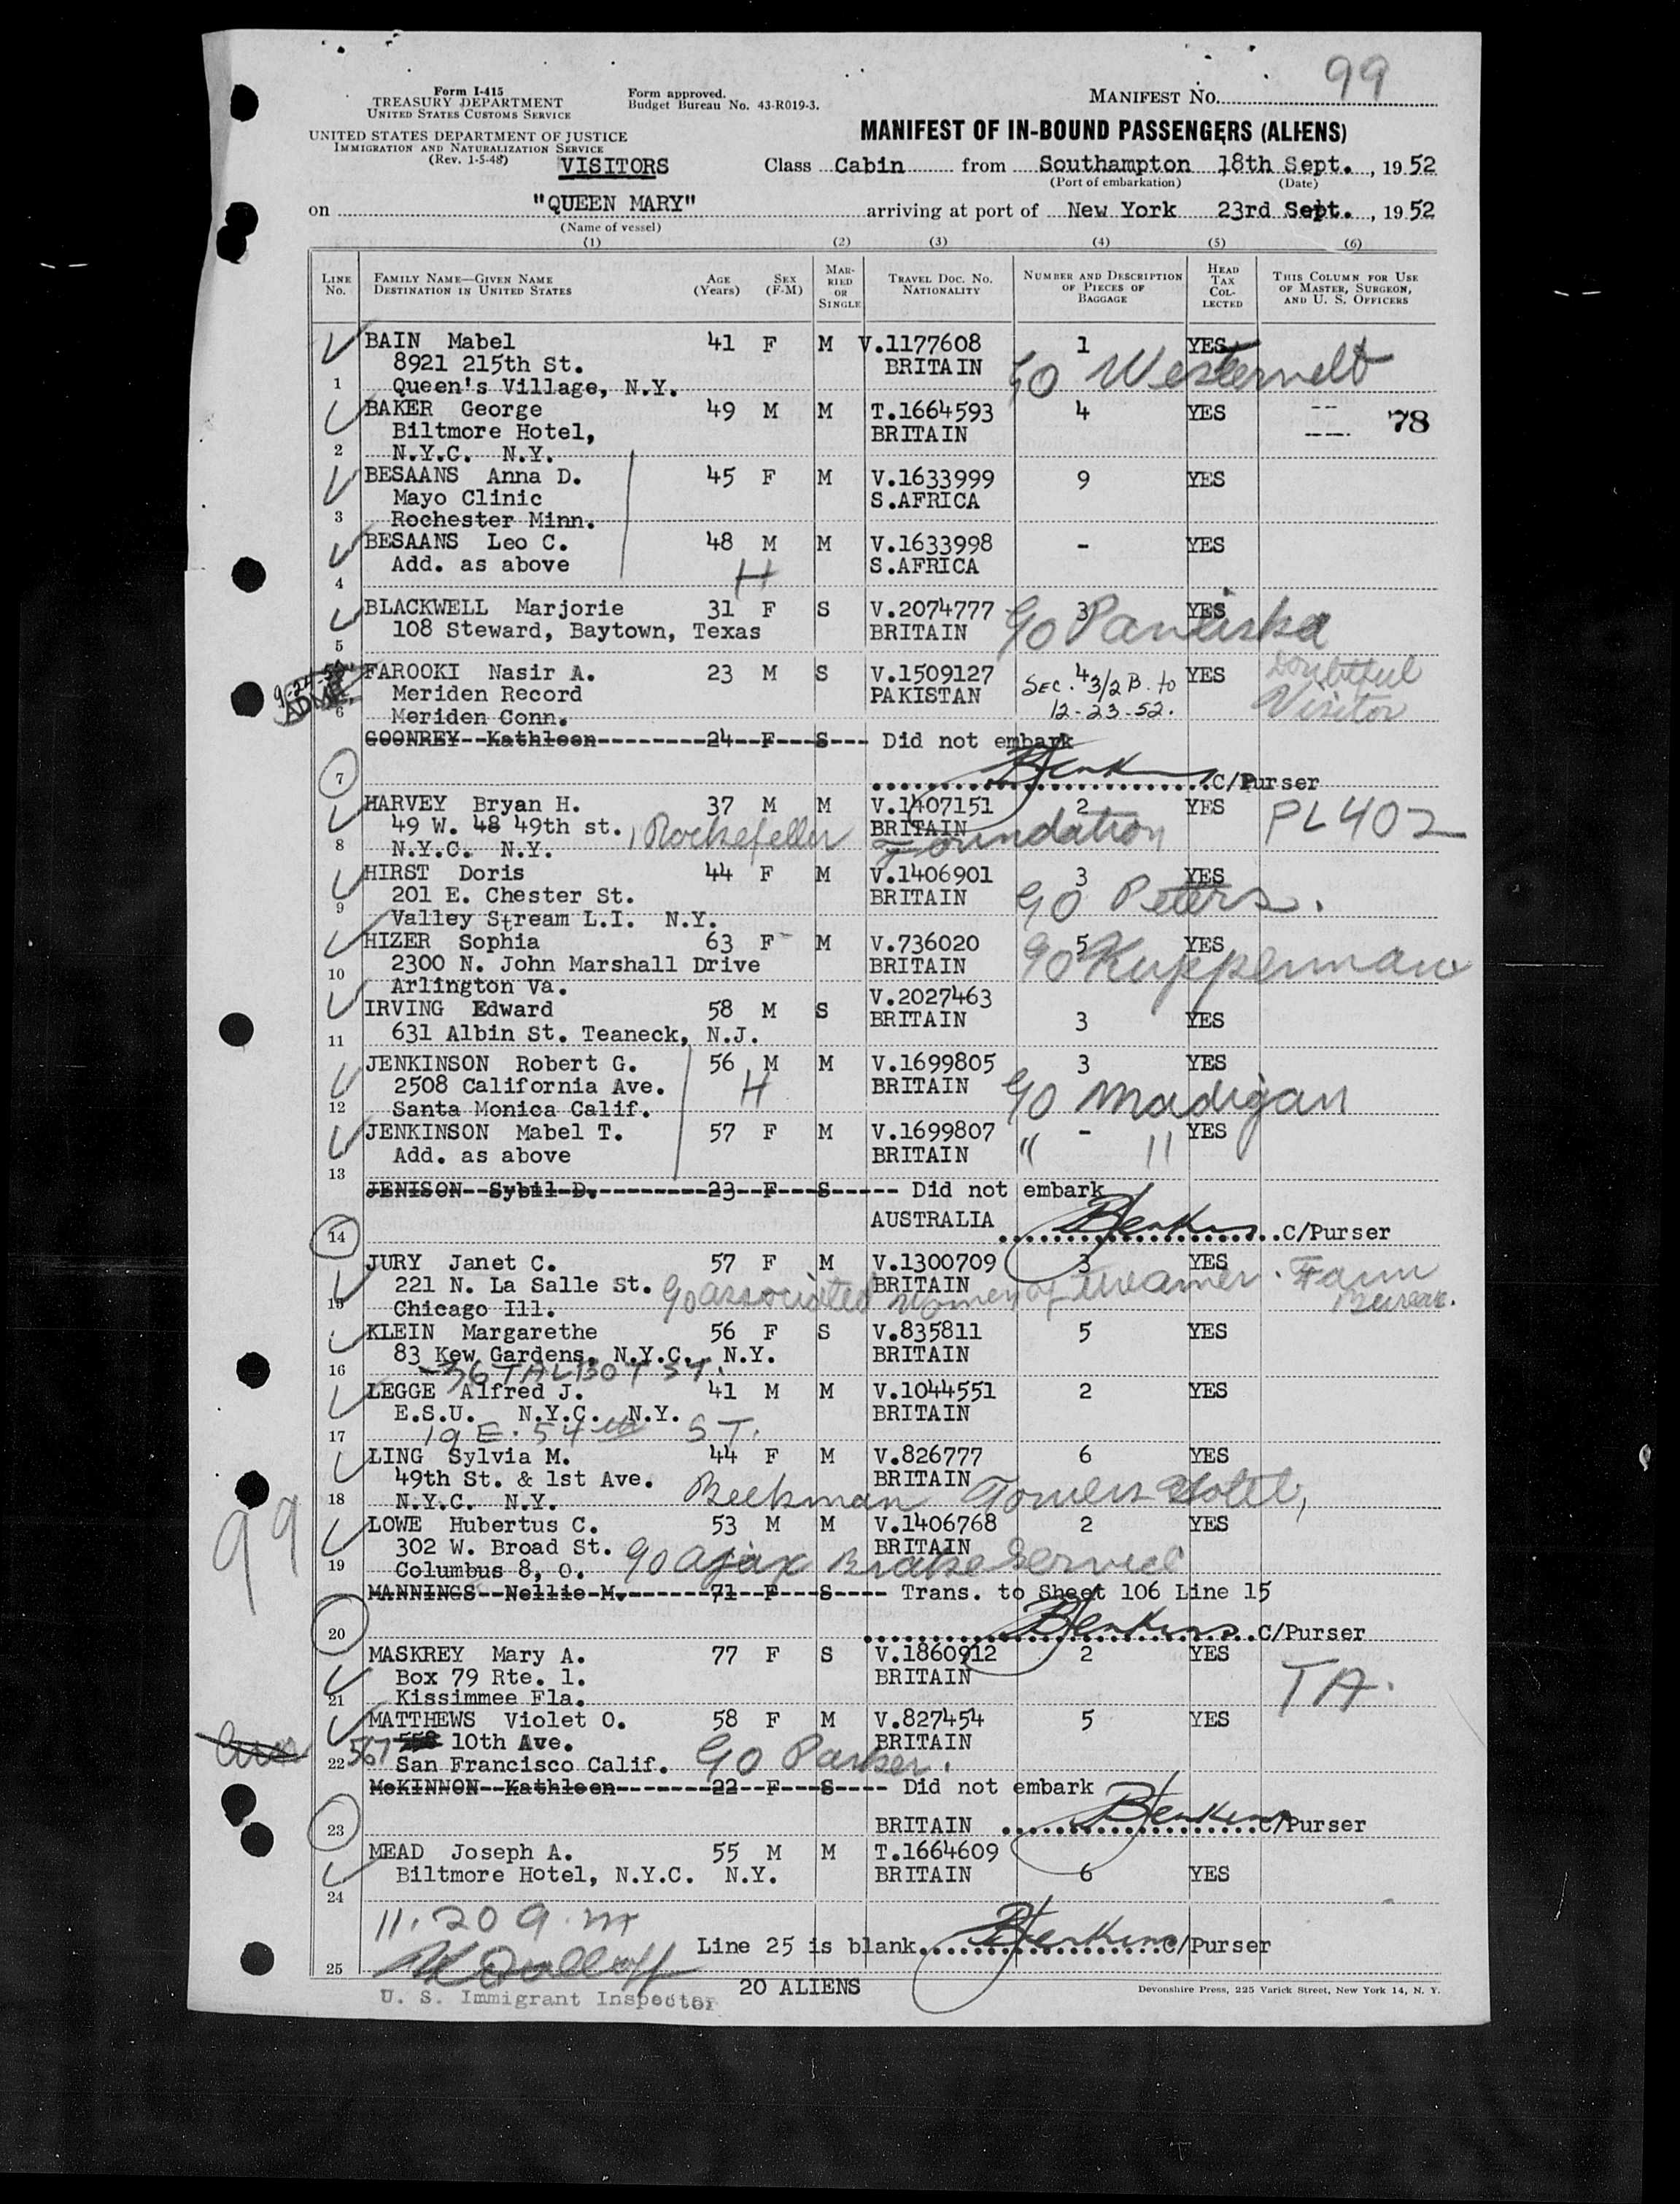 99
Form I-415
TREASURY DEPARTMENT
UNITED STATES CUSTOMS SERVICE
Form approved.
Budget Bureau No. 43-R019-3.
MANIFEST NO.
UNITED STATES DEPARTMENT OF JUSTICE
IMMIGRATION AND NATURALIZATION SERVICE
(Rev. 1-5-48)
MANIFEST OF IN-BOUND PASSENGERS (ALIENS)
VISITORS
Class Cabin from Southampton 18th Sept., 1952
(Port of embarkation) (Date)
on "QUEEN MARY" arriving at port of New York 23rd Sept., 1952
(Name of vessel)
(1) (2) (3) (4) (5) (6)
LINE NO.
FAMILY NAME—GIVEN NAME
DESTINATION IN UNITED STATES
AGE (Years)
SEX (F-M)
MARRIED OR SINGLE
TRAVEL DOC. NO.
NATIONALITY
NUMBER AND DESCRIPTION OF PIECES OF BAGGAGE
HEAD TAX COLLECTED
THIS COLUMN FOR USE OF MASTER, SURGEON, AND U. S. OFFICERS
BAIN Mabel 41 F M V.1177608 1 YES
8921 215th St. BRITAIN c/o Westervelt
1 Queen's Village, N.Y.
BAKER George 49 M M T.1664593 4 YES 78
Biltmore Hotel, BRITAIN
2 N.Y.C. N.Y.
BESAANS Anna D. 45 F M V.1633999 9 YES
Mayo Clinic S.AFRICA
3 Rochester Minn.
BESAANS Leo C. 48 M M V.1633998 - YES
Add. as above H S.AFRICA
4
BLACKWELL Marjorie 31 F S V.2074777 3 YES
108 Steward, Baytown, Texas BRITAIN c/o
5
FAROOKI Nasir A. 23 M S V.1509127 4 YES Doubtful
Meriden Record PAKISTAN SEC. 3/2 B. to Visitor
6 Meriden Conn. 12-23-52.
GOONREY Kathleen 24 F S Did not embark
7 C/Purser
HARVEY Bryan H. 37 M M V.1407151 2 YES PL 402
49 W. 48 49th st. Rockefeller BRITAIN Foundation
8 N.Y.C. N.Y.
HIRST Doris 44 F M V.1406901 3 YES
201 E. Chester St. BRITAIN c/o Peters.
9 Valley Stream L.I. N.Y.
HIZER Sophia 63 F M V.736020 5 YES
2300 N. John Marshall Drive BRITAIN c/o Kupperman
10 Arlington Va.
IRVING Edward 58 M S V.2027463
BRITAIN 3 YES
11 631 Albin St. Teaneck, N.J.
JENKINSON Robert G. 56 M M V.1699805 3 YES
2508 California Ave. H BRITAIN c/o Madigan
12 Santa Monica Calif.
JENKINSON Mabel T. 57 F M V.1699807 - YES
Add. as above BRITAIN " "
13
JENISON Sybil D. 23 F S Did not embark
14 AUSTRALIA C/Purser
JURY Janet C. 57 F M V.1300709 3 YES
221 N. La Salle St. c/o associated BRITAIN Women of Farm
15 Chicago Ill.
KLEIN Margarethe 56 F S V.835811 5 YES
83 Kew Gardens, N.Y.C. N.Y. BRITAIN
16 36 TALBOT ST.
LEGGE Alfred J. 41 M M V.1044551 2 YES
E.S.U. N.Y.C. N.Y. BRITAIN
17 19 E. 54th ST.
LING Sylvia M. 44 F M V.826777 6 YES
49th St. & 1st Ave. BRITAIN
18 N.Y.C. N.Y. Beekman Towers Hotel,
LOWE Hubertus C. 53 M M V.1406768 2 YES
302 W. Broad St. BRITAIN
19 Columbus 8, O. c/o Ajax Brake Service
MANNINGS Nellie M. 71 F S Trans. to Sheet 106 Line 15
20 C/Purser
MASKREY Mary A. 77 F S V.1860912 2 YES
Box 79 Rte. 1. BRITAIN TA.
21 Kissimmee Fla.
MATTHEWS Violet O. 58 F M V.827454 5 YES
567 10th Ave. BRITAIN
22 San Francisco Calif. c/o Parker.
McKINNON Kathleen 22 F S Did not embark
23 BRITAIN C/Purser
MEAD Joseph A. 55 M M T.1664609
Biltmore Hotel, N.Y.C. N.Y. BRITAIN 6 YES
24
11.20 a.m
Line 25 is blank C/Purser
25
20 ALIENS
U. S. Immigrant Inspector
Devonshire Press, 225 Varick Street, New York 14, N. Y.
99